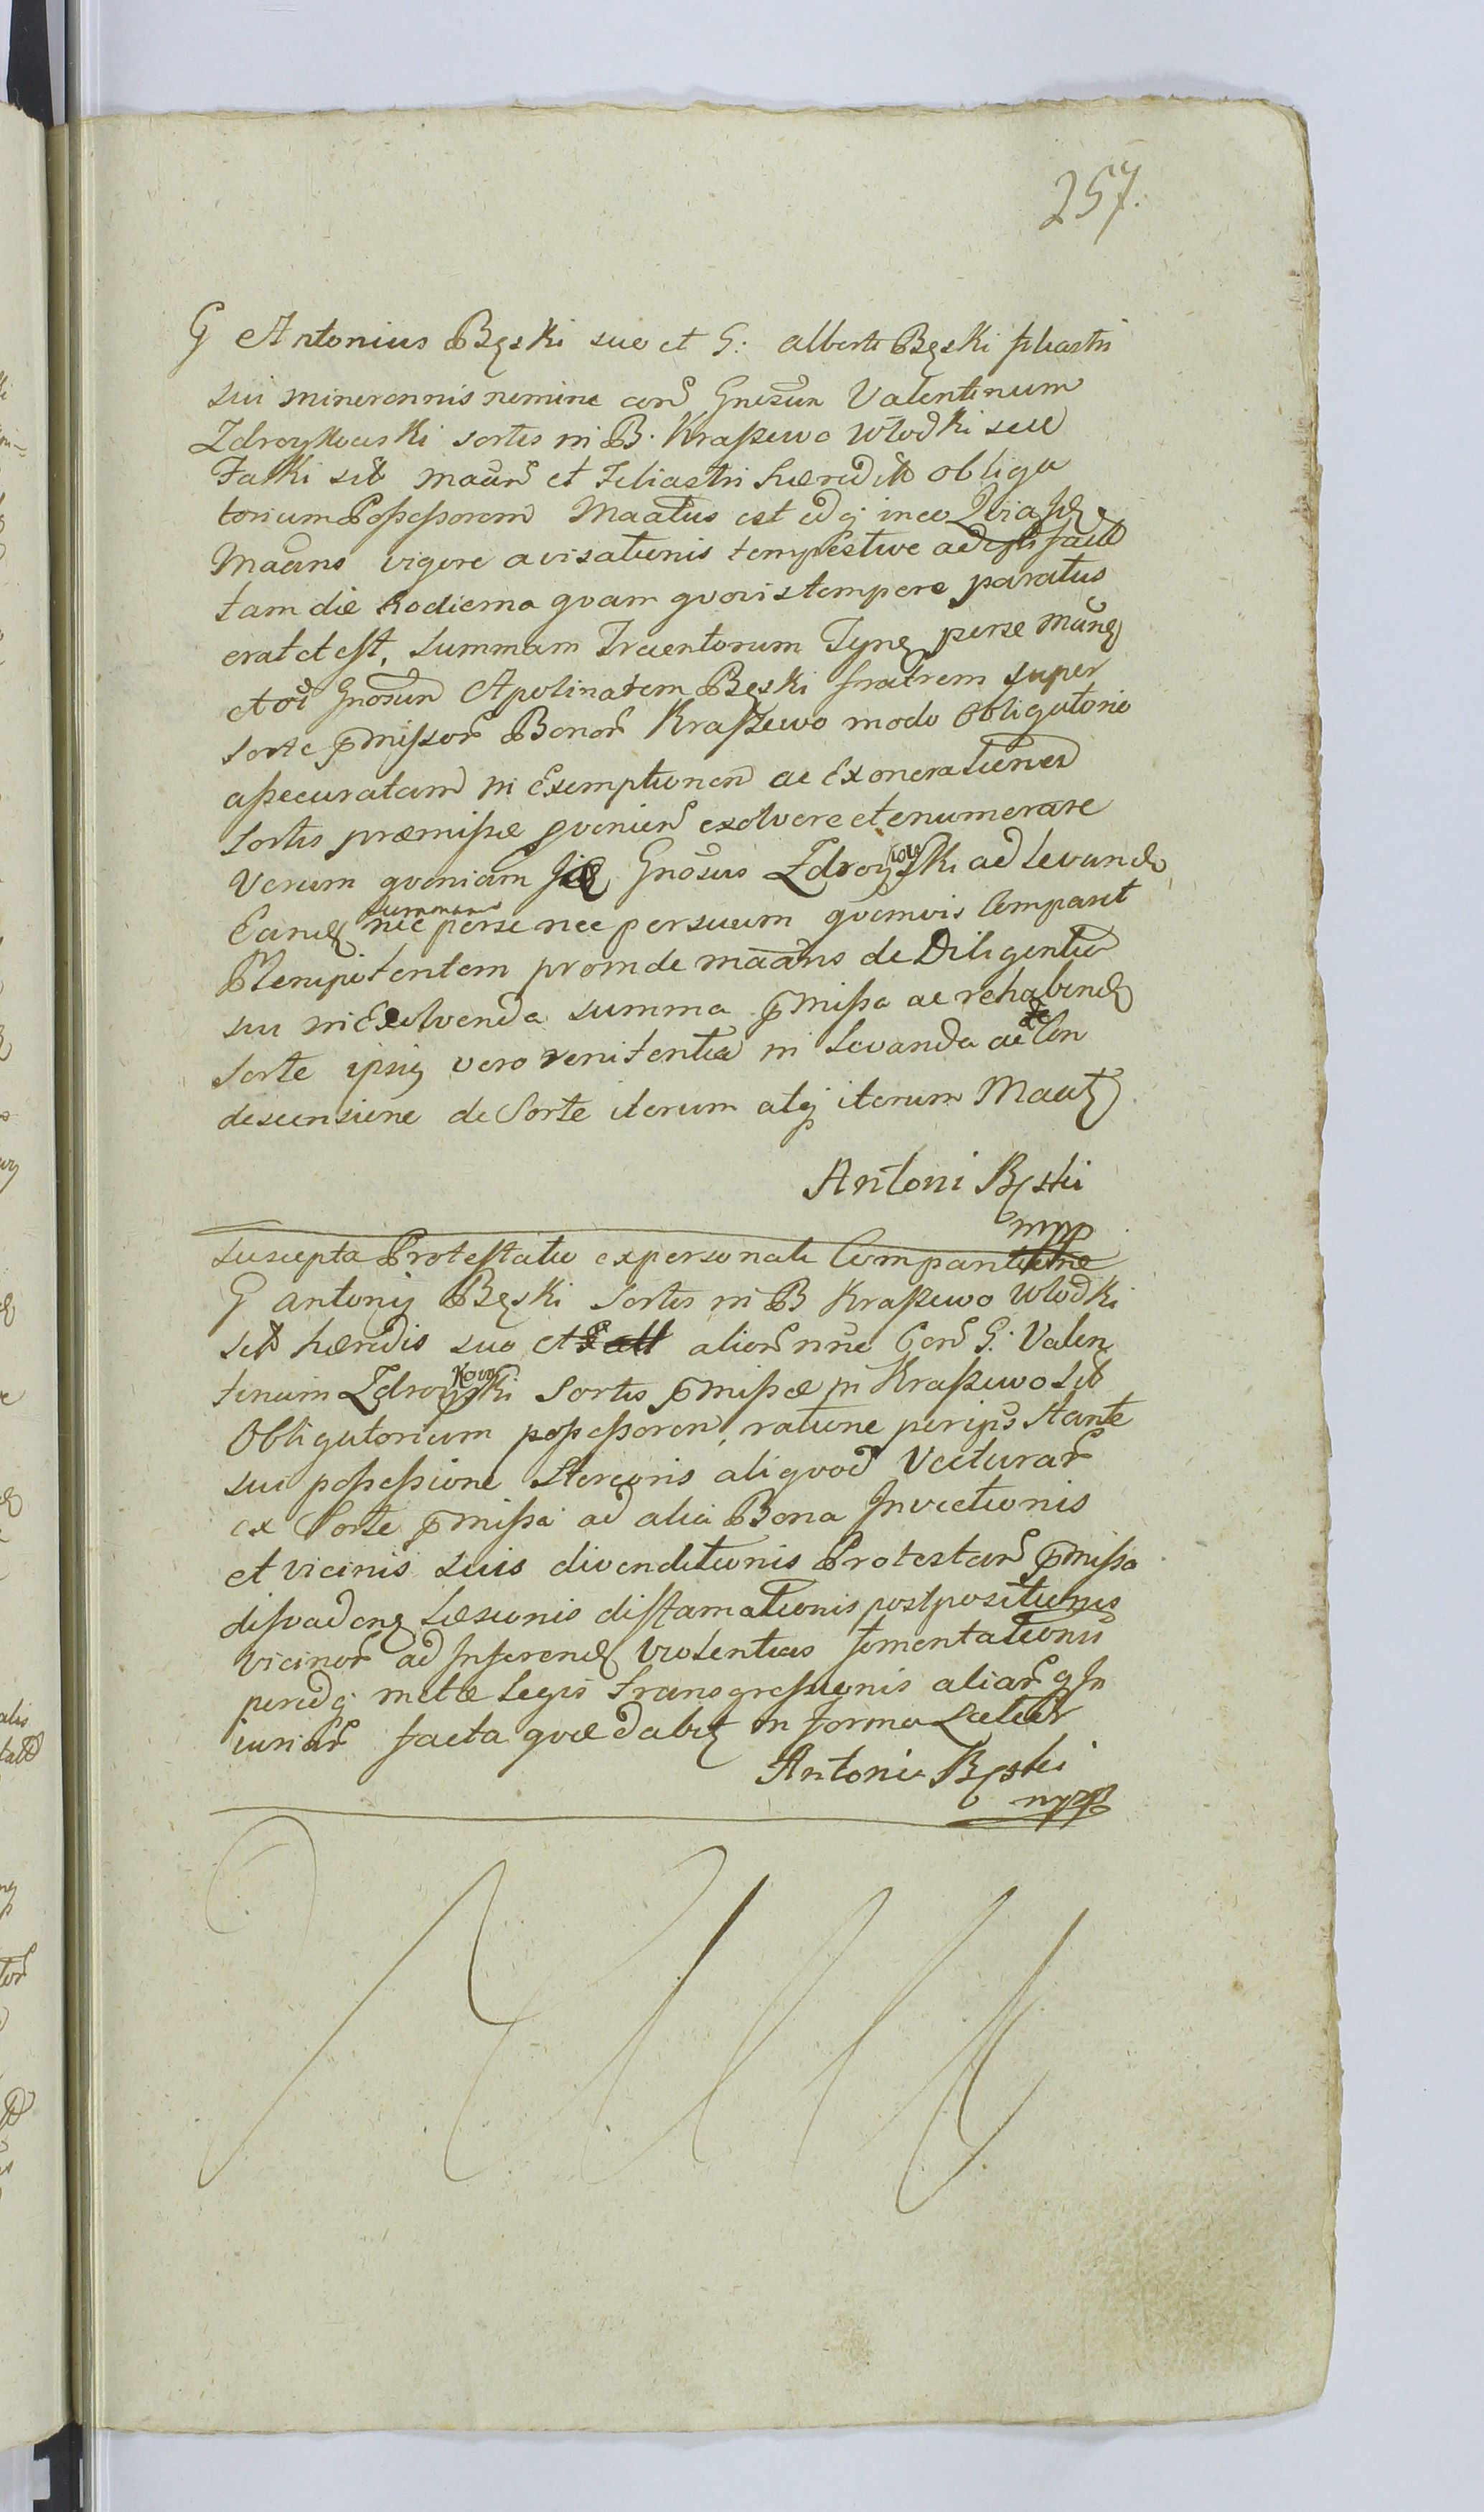 257.
G Antonius Bęski suo et G: Alberti Bęski filiastri
sui minorennis nomine con Gnosum Valentinum
Zdroykowski sortis in B. Kraszewo Włodki seu
Falki sit Maan et Filiastri hæredit obliga
torium Possessorem Maatus est idq in eo Quia Id
Maans vigore avisationis tempestive ad fact
tam die hodierna quam quovis tempore paratus
erat et est, summam Trecentorum Tynf per se Manq
et Gnosum Apolinarem Bęski fratrem super
sorte pmissor Bonor Kraszewo modo obligatorio
assecuratam in Exemptionem ac Exonerationem
sortis præmissæ exolvere et enumerare
Verum quoniam Gnosus Zdroykowski ad levandū
Eand summam nec per se nec per suum quemvis Comparit
Plenipotentem proinde maans de Diligentia
sui in Exolvenda summa pmissa ac rehabend
sorte ipsiq vero renitentia in Levanda ac Con
descensione de Sorte iterum atq iterum Maatq
Antoni Bęski
mpp
Suscepta Protestatio ex personali Comparitione
G Antonij Bęski Sortis in B Kraszewo Włodki
sit hæredis suo et alior nne Con G: Valen
tinum Zdroykowski Sortis pmissæ in Kraszewo sit
Obligatorium possessorem, ratione per ips stante
sui possessione Stercoris aliquod Vecturar
ex Sorte pmissa ad alia Bona Invectionis
et vicinis suis divenditionis Protestan pmissa
dissvadenq Læsionis diffamationis postpositionis
vicinor ad Inferend Violentias fomentationis
peridq metæ Legis transgressionis aliar q In
iuriar facta quæ dabit in forma Lattiori
Antoni Bęski
mpp